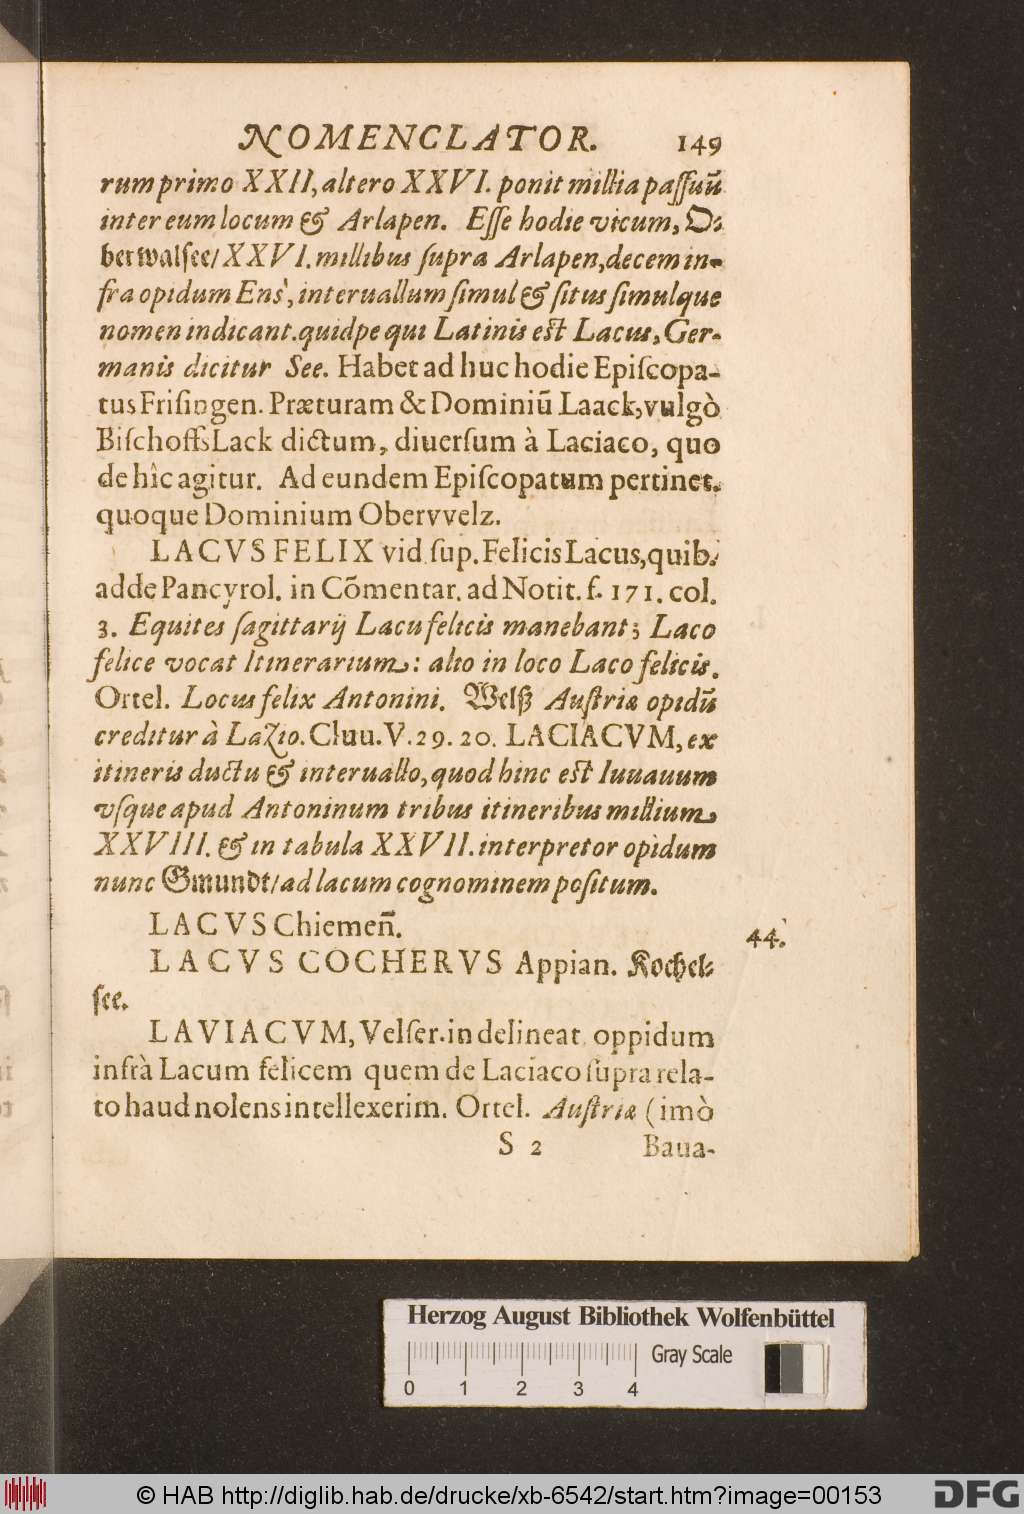 NOMENCLATOR. 149
rum primo XXII, altero XXVI. ponit millia passuũ
inter eum locum & Arlapen. Esse hodie vicum, O-
berwalsee/ XXVI. millibus supra Arlapen, decem in-
fra opidum Ens, interuallum simul & situs simulque
nomen indicant. quidpe qui Latinis est Lacus, Ger-
manis dicitur See. Habet ad huc hodie Episcopa-
tus Frisingen. Præturam & Dominiũ Laack, vulgò
BischoffsLack dictum, diuersum à Laciaco, quo
de hîc agitur. Ad eundem Episcopatum pertinet.
quoque Dominium Obervvelz.
LACVS FELIX vid. sup. Felicis Lacus, quib.
adde Pancyrol. in Cõmentar. ad Notit. f. 171. col.
3. Equites sagittarij Lacu felicis manebant; Laco
felice vocat Itinerarium: alio in loco Laco felicis.
Ortel. Locus felix Antonini. Welß Austriæ opidũ
creditur à Lazio. Cluu. V. 29. 20. LACIACVM, ex
itineris ductu & interuallo, quod hinc est Iuuauum
vsque apud Antoninum tribus itineribus millium
XXVIII. & in tabula XXVII. interpretor opidum
nunc Gmundt/ ad lacum cognominem positum.
LACVS Chiemeñ.
44.
LACVS COCHERVS Appian. Kochel-
see.
LAVIACVM, Velser. in delineat. oppidum
infrà Lacum felicem quem de Laciaco supra rela-
to haud nolens intellexerim. Ortel. Austriæ (imò
S 2 Baua-
Herzog August Bibliothek Wolfenbüttel
Gray Scale
0 1 2 3 4
© HAB http://diglib.hab.de/drucke/xb-6542/start.htm?image=00153
DFG